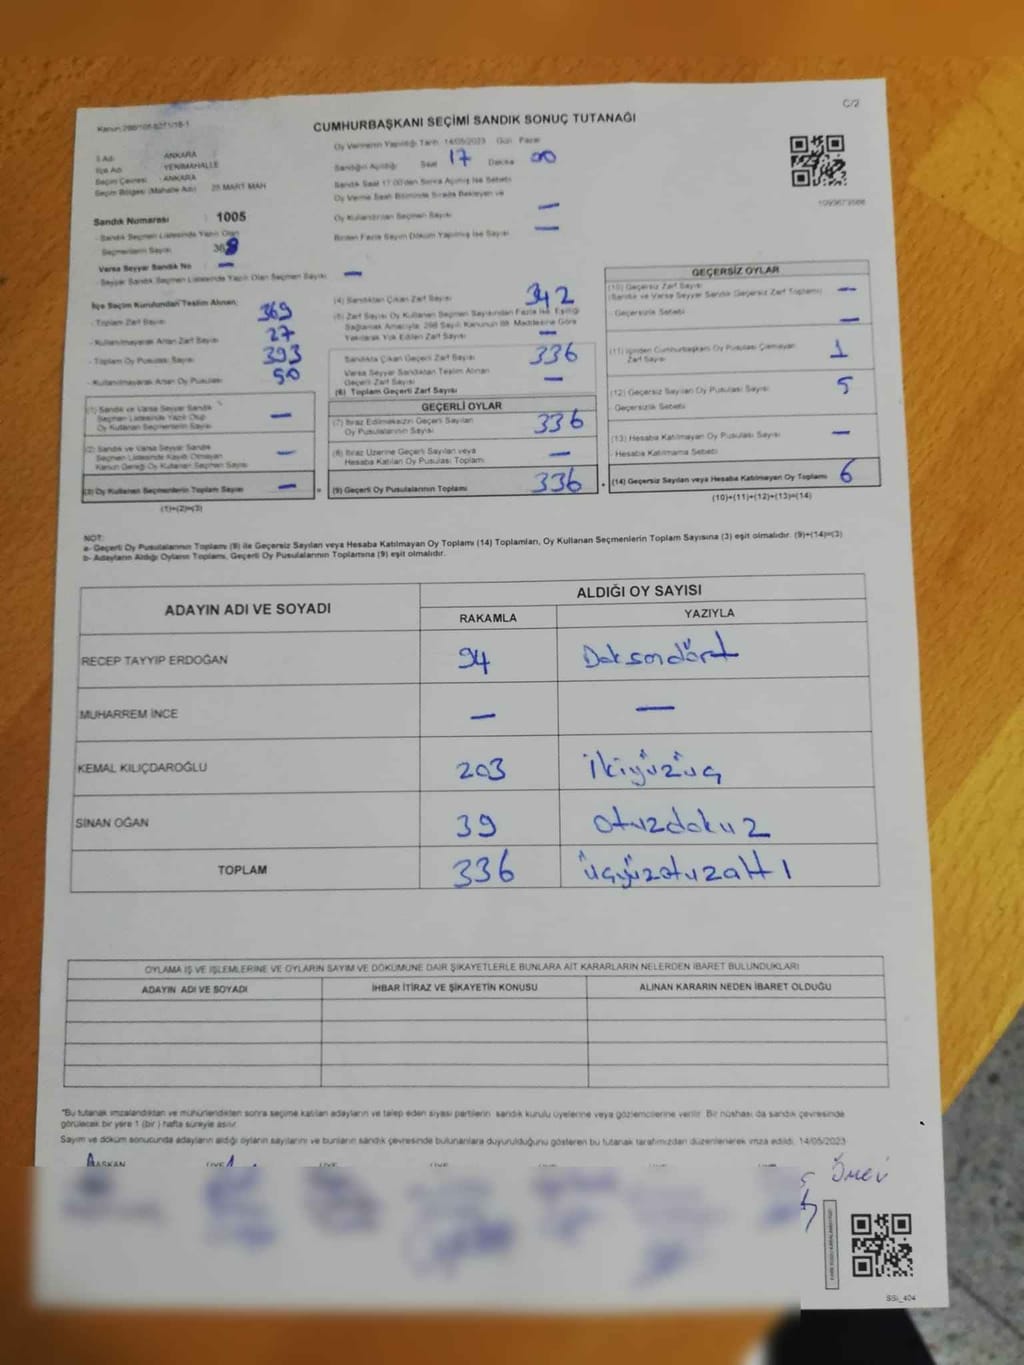 C/2
CUMHURBAŞKANI SEÇİMİ SANDIK SONUÇ TUTANAĞI
İl Adı ANKARA
İlçe Adı YENİMAHALLE
Seçim Çevresi ANKARA
Seçim Bölgesi (Mahalle Adı) 25 MART MAH
Sandık Numarası 1005
- Sandık Seçmen Listesinde Yazılı Olan
Seçmenlerin Sayısı
Varsa Seyyar Sandık No —
- Seyyar Sandık Seçmen Listesinde Yazılı Olan Seçmen Sayısı —
Oy Vermenin Yapıldığı Tarih: 14/05/2023 Gün: Pazar
Sandığın Açıldığı Saat 17 Dakika 00
Sandık Saat 17.00'den Sonra Açılmış İse Sebebi
Oy Verme Saati Bitiminde Sırada Bekleyen ve
Oy Kullandırılan Seçmen Sayısı —
Birden Fazla Sayım Döküm Yapılmış İse Sayısı —
İlçe Seçim Kurulundan Teslim Alınan;
- Toplam Zarf Sayısı 369
- Kullanılmayarak Artan Zarf Sayısı 27
- Toplam Oy Pusulası Sayısı 393
- Kullanılmayarak Artan Oy Pusulası 50
(1) Sandık ve Varsa Seyyar Sandık
Seçmen Listesinde Yazılı Olup
Oy Kullanan Seçmenlerin Sayısı —
(2) Sandık ve Varsa Seyyar Sandık
Seçmen Listesinde Kayıtlı Olmayan
Kanun Gereği Oy Kullanan Seçmen Sayısı —
(3) Oy Kullanan Seçmenlerin Toplam Sayısı —
(1)+(2)=(3)
(4) Sandıktan Çıkan Zarf Sayısı 342
(5) Zarf Sayısı Oy Kullanan Seçmen Sayısından Fazla İse, Eşitliği
Sağlamak Amacıyla, 298 Sayılı Kanunun 98. Maddesine Göre
Yakılarak Yok Edilen Zarf Sayısı —
Sandıkta Çıkan Geçerli Zarf Sayısı 336
Varsa Seyyar Sandıktan Teslim Alınan
Geçerli Zarf Sayısı —
(6) Toplam Geçerli Zarf Sayısı
GEÇERLİ OYLAR
(7) İtiraz Edilmeksizin Geçerli Sayılan
Oy Pusulalarının Sayısı 336
(8) İtiraz Üzerine Geçerli Sayılan veya
Hesaba Katılan Oy Pusulası Toplamı —
(9) Geçerli Oy Pusulalarının Toplamı 336
GEÇERSİZ OYLAR
(10) Geçersiz Zarf Sayısı
(Sandık ve Varsa Seyyar Sandık Geçersiz Zarf Toplamı) —
- Geçersizlik Sebebi —
(11) İçinden Cumhurbaşkanı Oy Pusulası Çıkmayan
Zarf Sayısı 1
(12) Geçersiz Sayılan Oy Pusulası Sayısı 5
- Geçersizlik Sebebi
(13) Hesaba Katılmayan Oy Pusulası Sayısı —
- Hesaba Katılmama Sebebi
(14) Geçersiz Sayılan veya Hesaba Katılmayan Oy Toplamı 6
(10)+(11)+(12)+(13)=(14)
NOT:
a- Geçerli Oy Pusulalarının Toplamı (9) ile Geçersiz Sayılan veya Hesaba Katılmayan Oy Toplamı (14) Toplamları, Oy Kullanan Seçmenlerin Toplam Sayısına (3) eşit olmalıdır. (9)+(14)=(3)
b- Adayların Aldığı Oyların Toplamı, Geçerli Oy Pusulalarının Toplamına (9) eşit olmalıdır.
ADAYIN ADI VE SOYADI ALDIĞI OY SAYISI
RAKAMLA YAZIYLA
RECEP TAYYİP ERDOĞAN 94 Doksandört
MUHARREM İNCE — —
KEMAL KILIÇDAROĞLU 203 ikiyüzüç
SİNAN OĞAN 39 otuzdokuz
TOPLAM 336 üçyüzotuzaltı
OYLAMA İŞ VE İŞLEMLERİNE VE OYLARIN SAYIM VE DÖKÜMÜNE DAİR ŞİKAYETLERLE BUNLARA AİT KARARLARIN NELERDEN İBARET BULUNDUKLARI
ADAYIN ADI VE SOYADI İHBAR İTİRAZ VE ŞİKAYETİN KONUSU ALINAN KARARIN NEDEN İBARET OLDUĞU
*Bu tutanak imzalandıktan ve mühürlendikten sonra seçime katılan adayların ve talep eden siyasi partilerin sandık kurulu üyelerine veya gözlemcilerine verilir. Bir nüshası da sandık çevresinde
görülecek bir yere 1 (bir) hafta süreyle asılır.
Sayım ve döküm sonucunda adayların aldığı oyların sayılarını ve bunların sandık çevresinde bulunanlara duyurulduğunu gösteren bu tutanak tarafımızdan düzenlenerek imza edildi. 14/05/2023
BAŞKAN ÜYE ÜYE ÜYE ÜYE
SSi_404